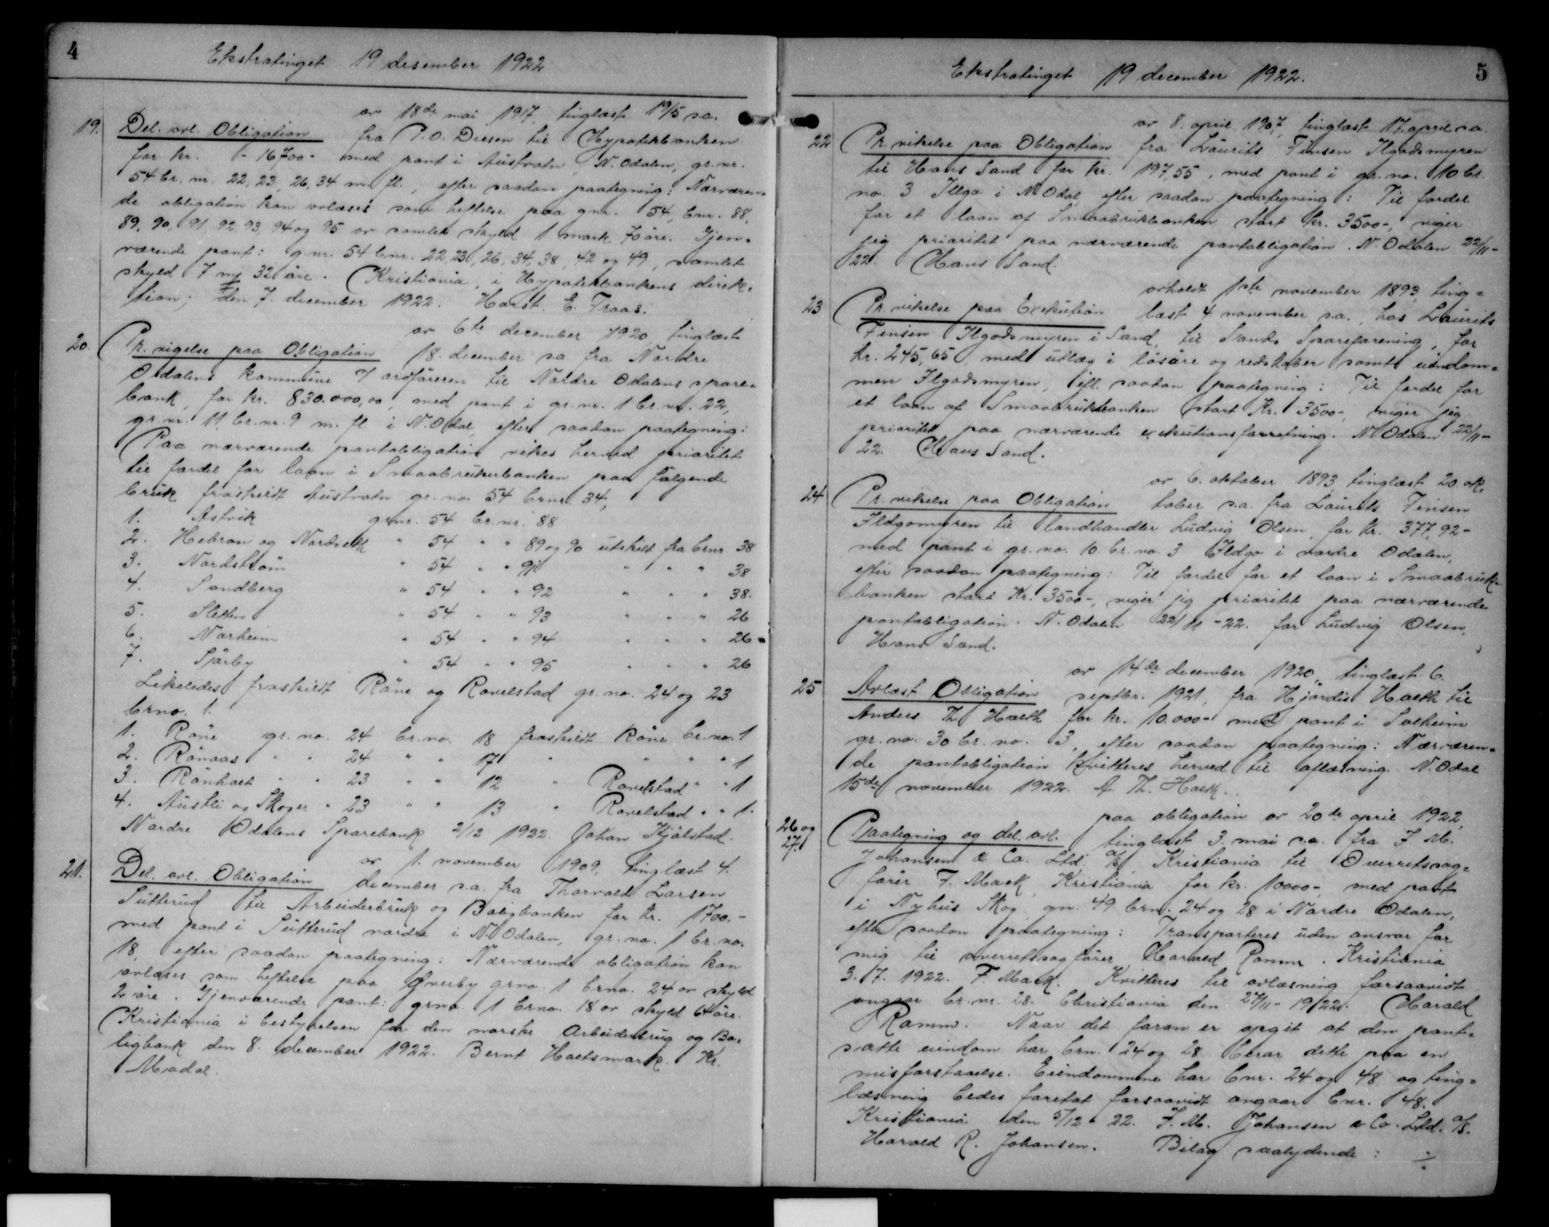 4
Ekstratinget 19 desember 1922
av 18de mai 1917, tinglæst 19/5 s.a.
19. Del. avl. Obligation fra P. O. Diesen til Hypotekbanken
for kr. - 16700- med pant i Austvatn, N. Odalen, gr. nr.
54 br. nr. 22, 23, 26, 34 m. fl., efter saadan paategning: Nærværen-
de obligation kan avlæses som heftelse paa gnr. 54 bnr. 88,
89, 90, 91, 92, 93, 94 og 95 av samlet skyld 1 mark 70 øre. Gjen-
værende pant: g.nr. 54 bnr. 22, 23, 26, 34, 38, 42 og 49, samlet
skyld 7 mk 32 øre. Kristiania, i Hypotekbankens direk-
tion, den 7. december 1922. Harst. E. Traas.
av 6te december 1920, tinglæst
20. Pr. vigelse paa Obligation 18. december s.a. fra Nordre
Odalens kommune v/ ordføreren til Nordre Odalens spare-
bank, for kr. 830.000,00, med pant i gr. nr. 1 br. nr. 22,
gr. nr. 11, br. nr. 9 m. fl. i N. Odal, efter saadan paategning:
Paa nærværende pantobligation vikes herved prioritet
til fordel for laan i Smaabrukerbanken paa følgende
bruk fraskildt Austvatn gr. no. 54 brnr. 34,
1. Astvik gr. nr. 54 br. nr. 88
2. Hebron og Nordvik " 54 " " 89 og 90 utskilt fra brnr 38
3. Nordstrøm " 54 " " 91 " " " 38
4. Sandberg " 54 " " 92 " " " 38
5. Sletten " 54 " " 93 " " " 26
6. Norheim " 54 " " 94 " " " 26
7. Sjørby " 54 " " 95 " " " 26
Likeledes fraskildt Røne og Ravelstad gr. no. 24 og 23
brno. 1.
1. Røne gr. no. 24 br. no. 18 fraskildt Røne br. no. 1
2. Rønaas " " 24 " " 17 " " " " 1
3. " " 23 " " 12 " Ravelstad " " 1
4. Austli og Skoger " 23 " " 13 " Ravelstad " " 1.
Nordre Odalens Sparebank 2/12 1922. Johan Kjølstad.
av 1. november 1909, tinglæst 4.
21. Del. avl. Obligation december s.a. fra Thorvald Larsen
Sutterud til Arbeiderbruk og Boligbanken for kr. 1700.-
med pant i Sutterud nordre i N. Odalen, gr. no. 1 br. no.
18, efter saadan paategning: Nærværende obligation kan
avlæses som heftelse paa Enerby grno. 1 brno. 24 av skyld
2 øre. Gjenværende pant: grno 1 brno. 18 av skyld 64 øre.
Kristiania i bestyrelsen for den norske Arbeiderbrug og Bo-
ligbank den 8. december 1922. Bernt Holtsmark. Kr.
Modal.
Ekstratinget 19 december 1922.
5
av 8. april 1907, tinglæst 17. april s.a.
22 Pr. vikelse paa Obligation fra Laurits Finsen Ilgodsmyren
til Hans Sand for kr. 197,55, med pant i gr. no. 10 br.
no. 3 Illgo i N. Odal, efter saadan paategning: Til fordel
for et laan af Smaabrukbanken stort kr. 3500-, viger
jeg prioritet paa nærværende pantobligation. N. Odalen 22/11-
22. Hans Sand.
avholdt 1ste november 1893, ting-
23 Pr. vikelse paa Exekution læst 4 november s.a., hos Laurits
Finsen Ilgodsmyren i Sand, til Sands Spareforening, for
kr. 245,65 med utlæg i løsøre og redskaber samt eiendom-
men Ilgodsmyren, eft. saadan paategning: Til fordel for
et laan af Smaabrukbanken stort Kr. 3500-, viger jeg
prioritet paa nærværende exekutionsforretning. N. Odalen 22/11-
22. Hans Sand.
av 6. oktober 1893, tinglæst 20 ok-
24 Pr. vikelse paa Obligation tober s.a. fra Laurits Finsen
Ildgomyren til landhandler Ludvig Olsen, for kr. 377,92-
med pant i gr. no. 10 br. no 3 Ildgo i nordre Odalen,
efter saadan paategning: Til fordel for et laan i Smaabruk-
banken stort Kr. 3500-, viger jeg prioritet paa nærværende
pantobligation. N. Odalen 22/11-22. for Ludvig Olsen,
Hans Sand.
av 14de december 1920, tinglæst 6.
25 Avlæst Obligation septbr. 1921, fra Hjørdis Hoelk til
Anders Th. Hoelk for kr. 10.000- med pant i Solheim
gr. no. 30 br. no. 3, efter saadan paategning: Nærværen-
de pantobligation kvitteres herved til aflæsning. N. Odal
15de november 1922. A. Th. Hoelk.
paa obligation av 20de april 1922,
26 og
27. Paategning og del. avl. tinglæst 3. mai s.a. fra J. M.
Johansen & Co. Ltd. A/S, Kristiania til Overretssag-
fører F. Mack, Kristiania for kr. 10000-, med pant
i Nyhus Skog, gn. 49 brn. 24 og 28 i Nordre Odalen,
efter saadan paategning: Transporteres uden ansvar for
mig til overretssagfører Harald Ramm. Kristiania
3.7. 1922. F. Mack. Kvitteres til avlæsning forsaavidt
angaar br. nr. 28. Christiania den 27/11-1922. Harald
Ramm. Naar det foran er opgit at den pant-
satte eiendom har brn. 24 og 28 beror dette paa en
misforstaaelse. Eiendommene har bnr. 24 og 48 og ting-
læsning bedes foretat forsaavidt angaar bnr. 48.
Kristiania den 5/12 22. J. M. Johansen & Co. Ltd. A/S.
Harald R. Johansen. Bilag saalydende: ÷